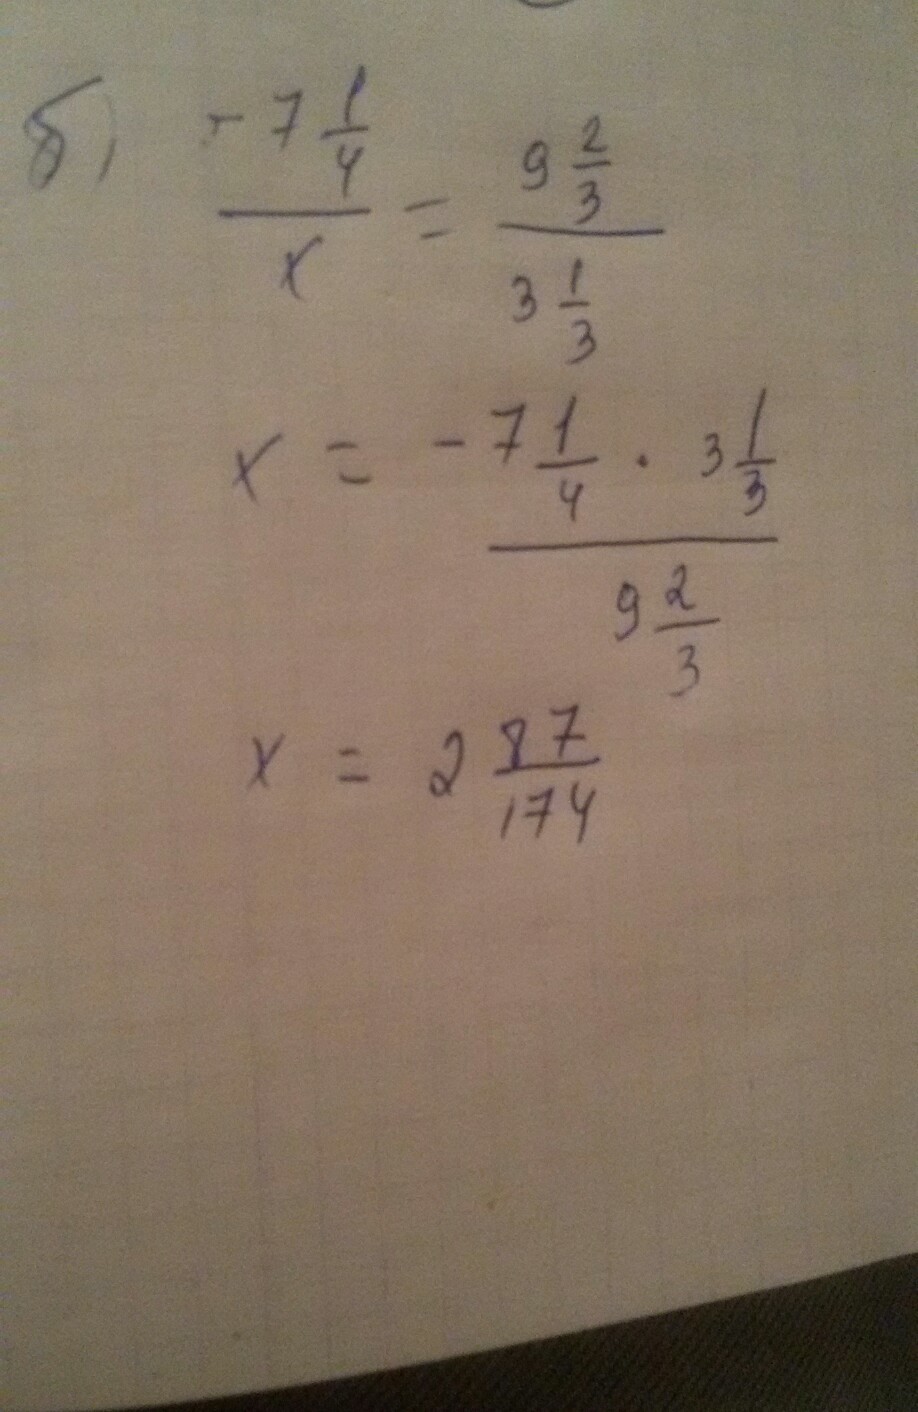 б) -7 1/4 / x = 9 2/3 / 3 1/3
x = -7 1/4 · 3 1/3 / 9 2/3
x = 2 87/174